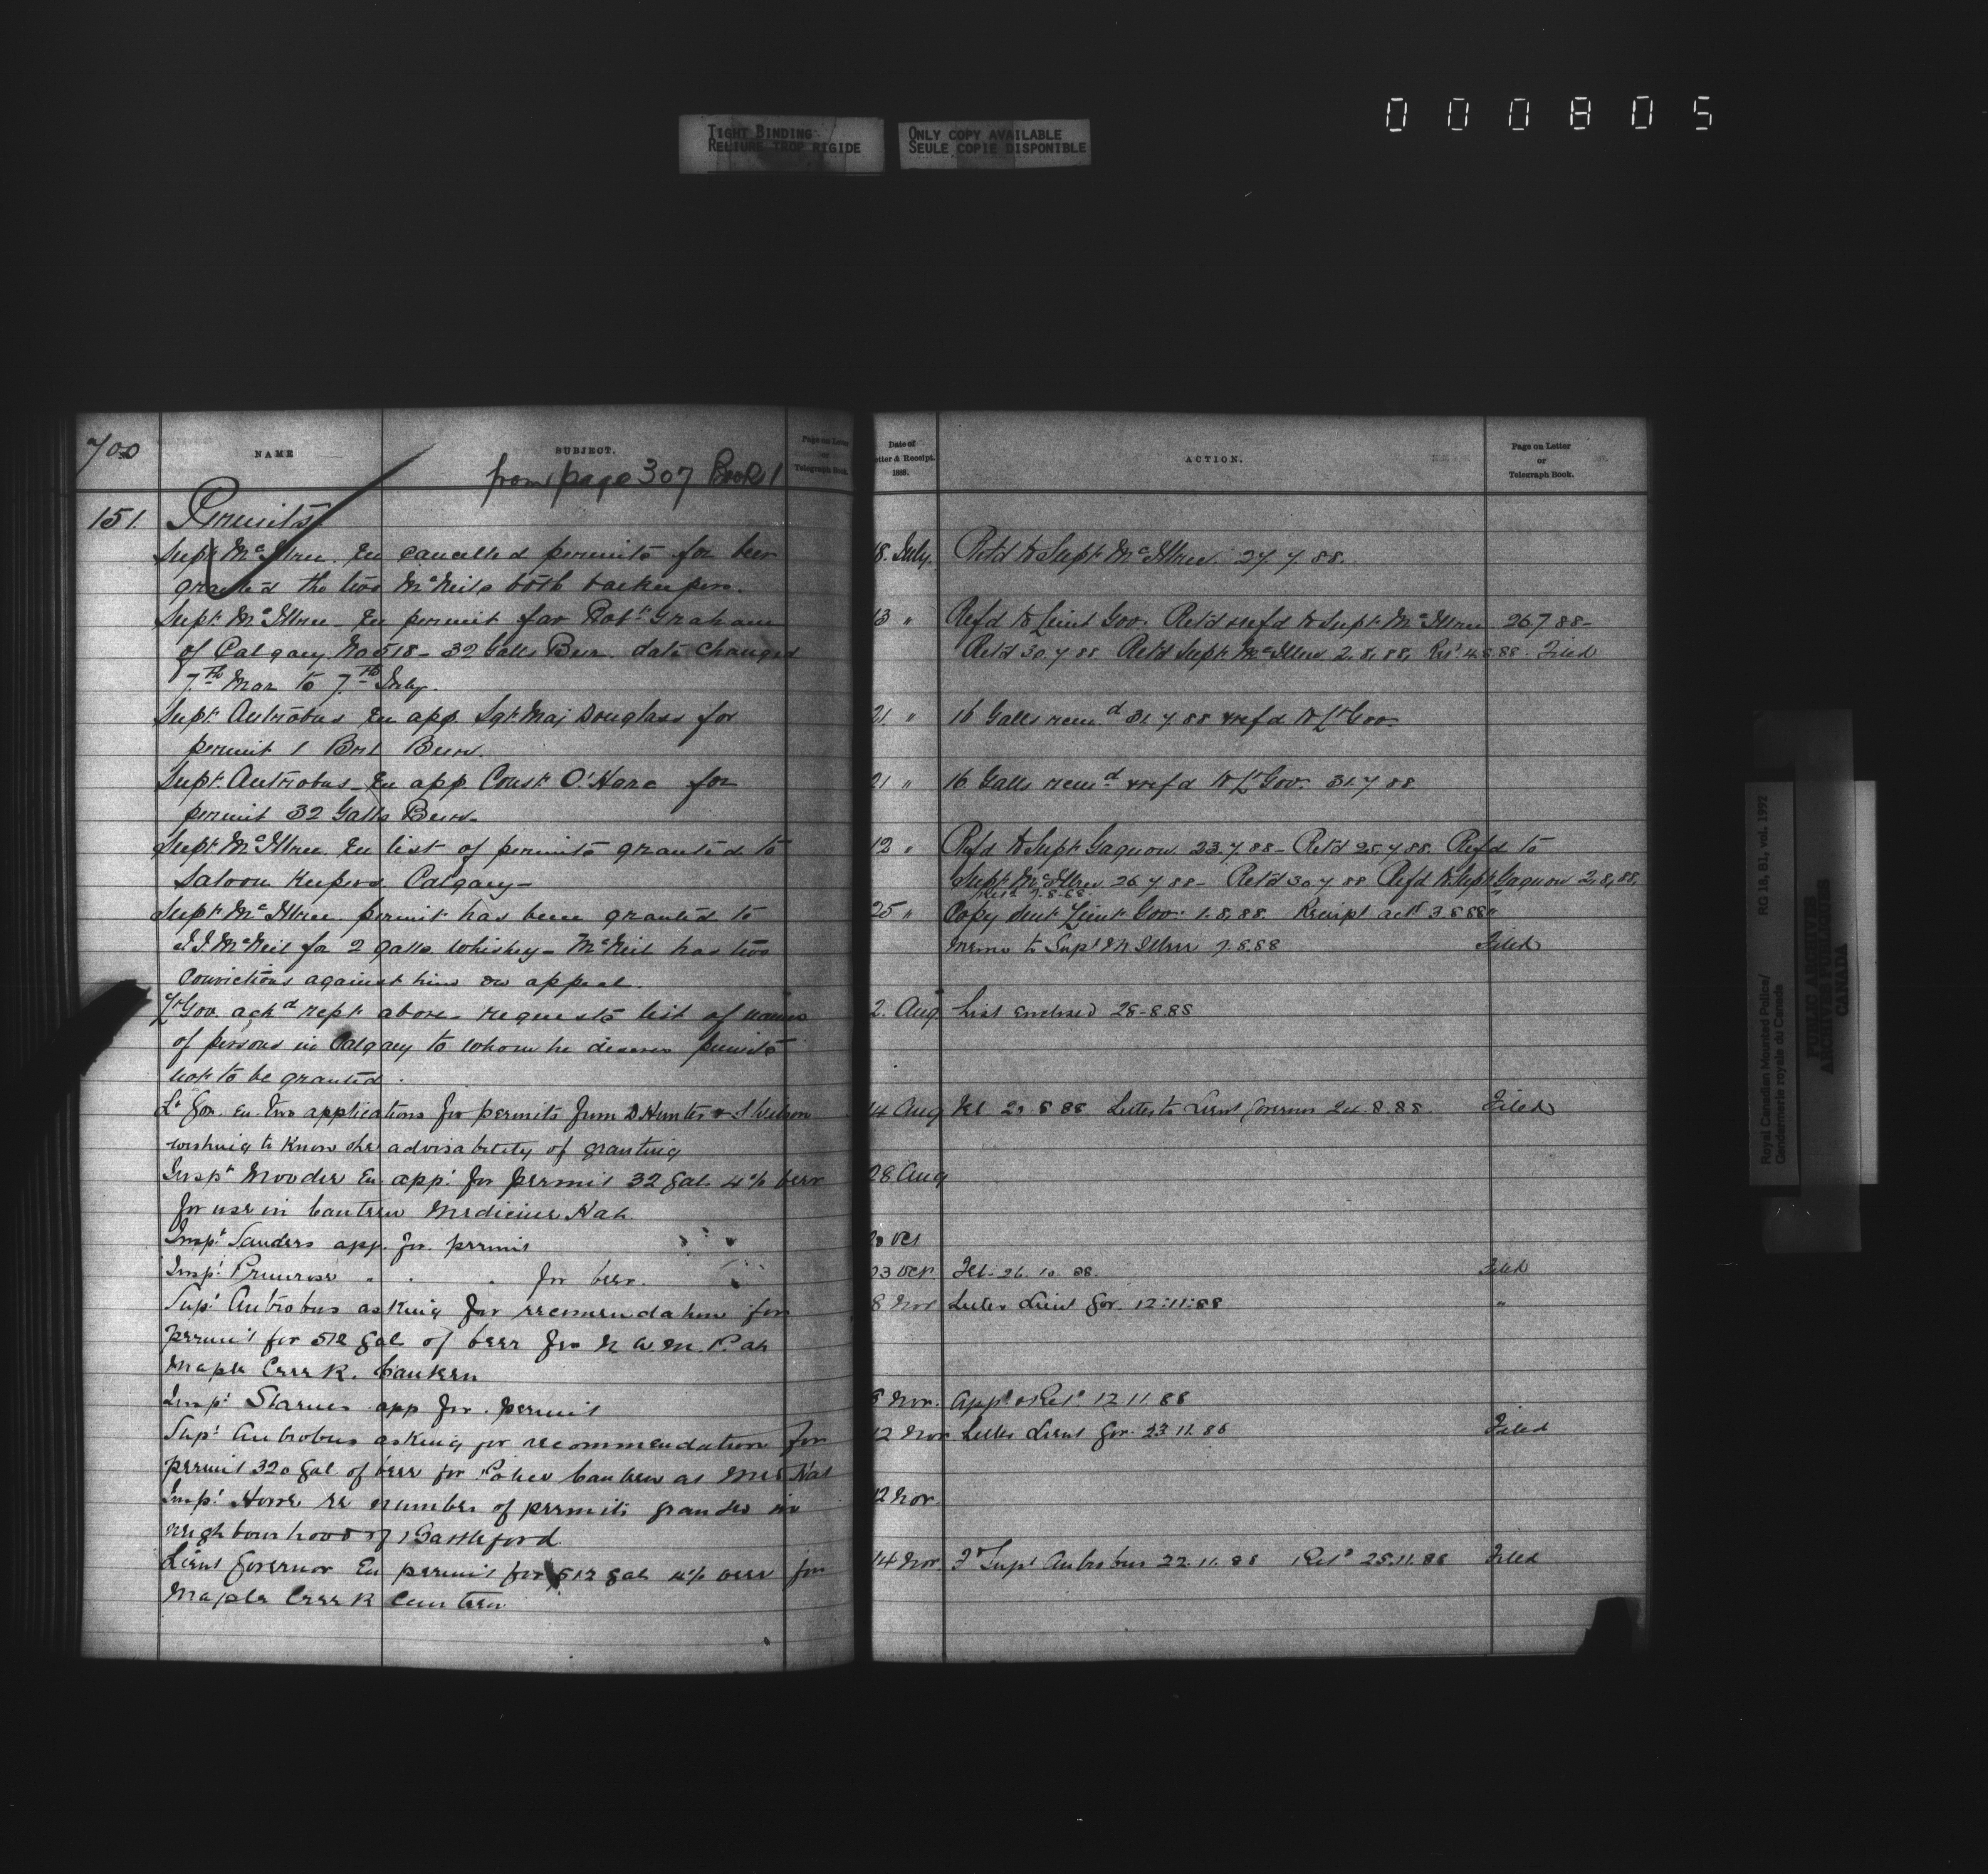 TIGHT BINDING
RELIURE TROP RIGIDE
ONLY COPY AVAILABLE
SEULE COPIE DISPONIBLE
000805
700
NAME
SUBJECT.
Page on Letter
or
Telegraph Book.
from page 307 Book 1
151. Permits
Supt. McIllree. En cancelled permits for beer
granted the two McNeils both barkeepers.
Supt. McIllree - En permit for Robt. Graham
of Calgary. No 518 - 32 Galls Beer. date changed
7th Mar to 7th July.
Supt. Antrobus En app. Sgt. Maj Douglass for
permit 1 Brl Beer.
Supt. Antrobus - En app. Const. O'Hara for
permit 32 Galls Beer.
Supt. McIllree En list of permits granted to
Saloon Keepers Calgary -
Supt. McIllree. permit has been granted to
McNeil for 2 galls Whiskey - McNeil has two
Convictions against him on appeal.
Lt Gov. ackd rept. above - requests list of names
of persons in Calgary to whom he desires permits
not to be granted.
Lt Gov. En. two applications for permits from D Hunter &
wishing to know the advisability of granting
Inspt Moodie En app. for permit 32 gal. 4% beer
for use in Canteen Medicine Hat.
Inspt. Sanders app. for permit
Inspt. Primrose " " " for beer.
Supt Antrobus asking for recommendation for
permit for 512 gal of beer for N W M P. at
Maple Creek. Canteen
Inspt Starnes app for permit
Supt Antrobus asking for recommendation for
permit 320 gal. of beer for Police Canteen at Med Hat
Inspt Howe re number of permits granted in
neighbourhood of Battleford.
Lieut Governor En permit for 512 gal 4% beer for
Maple Creek Canteen
Date of
Letter & Receipt.
1888.
ACTION.
Page on Letter
or
Telegraph Book.
18. July. Ret'd to Supt. McIllree. 27.7.88.
13 " Refd to Lieut Gov. Ret'd & refd to Supt. McIllree 26.7.88 -
Ret'd 30.7.88 Ret'd Supt. McIllree 2.8.88. Filed
21 " 16 Galls recmd 31.7.88 & refd to Lt Gov.
21 " 16 Galls recmd & refd to Lt Gov. 31.7.88.
12 " Refd to Supt. Gagnon 23.7.88 - Ret'd 25.7.88. Refd to
Supt McIllree 26.7.88 - Ret'd 30.7.88 Refd to Supt. Gagnon 2.8.88.
25 " Copy sent Lieut. Gov: 1.8.88. Receipt ackd 3.8.88 "
Memo to Supt McIllree 7.8.88 Filed
2. Aug List Enclosed 28-8.88
14 Aug Letter to Lieut Governor 24.8.88. Filed
28 Aug
20 Oct
23 Oct. 26.10.88. Filed
8 Nov Letter Lieut Gov. 12:11:88 "
8 Nov. Appd & Retd 12.11.88
12 Nov Letter Lieut Gov. 23.11.88 Filed
12 Nov.
14 Nov Supt Antrobus 22.11.88 Retd 28.11.88 Filed
Royal Canadian Mounted Police/
Gendarmerie royale du Canada
RG 18, B1, vol. 1992
PUBLIC ARCHIVES
ARCHIVES PUBLIQUES
CANADA